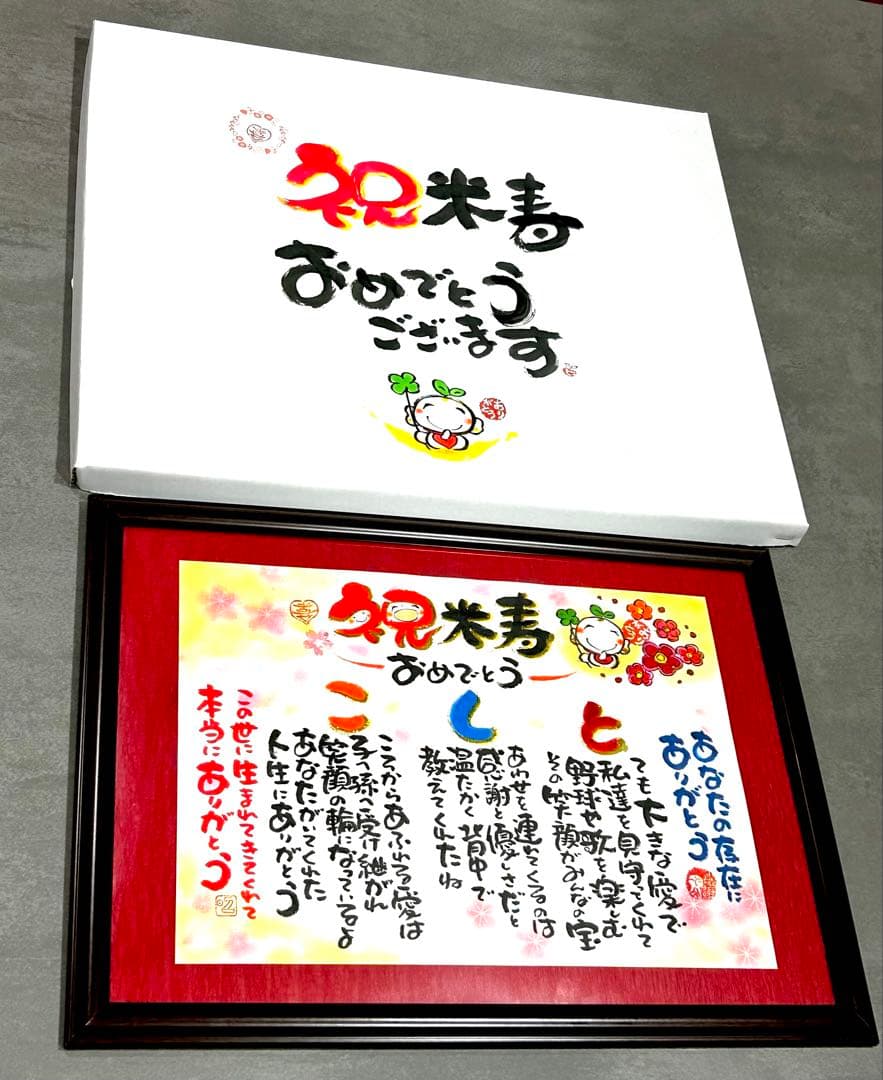 祝米寿
おめでとう
ございます
ありがとう
祝米寿
おめでとう
あなたの存在に
ありがとう
と
ても大きな愛で
私達を見守ってくれて
野球や歌を楽しむ
その笑顔がみんなの宝
し
あわせを運んでくるのは
感謝と優しさだと
温たかく背中で
教えてくれたね
こ
こころからあふれる愛は
子へ孫へ受け継がれ
笑顔の輪になっているよ
あなたがいてくれた
人生にありがとう
この世に生まれてきてくれて
本当にありがとう